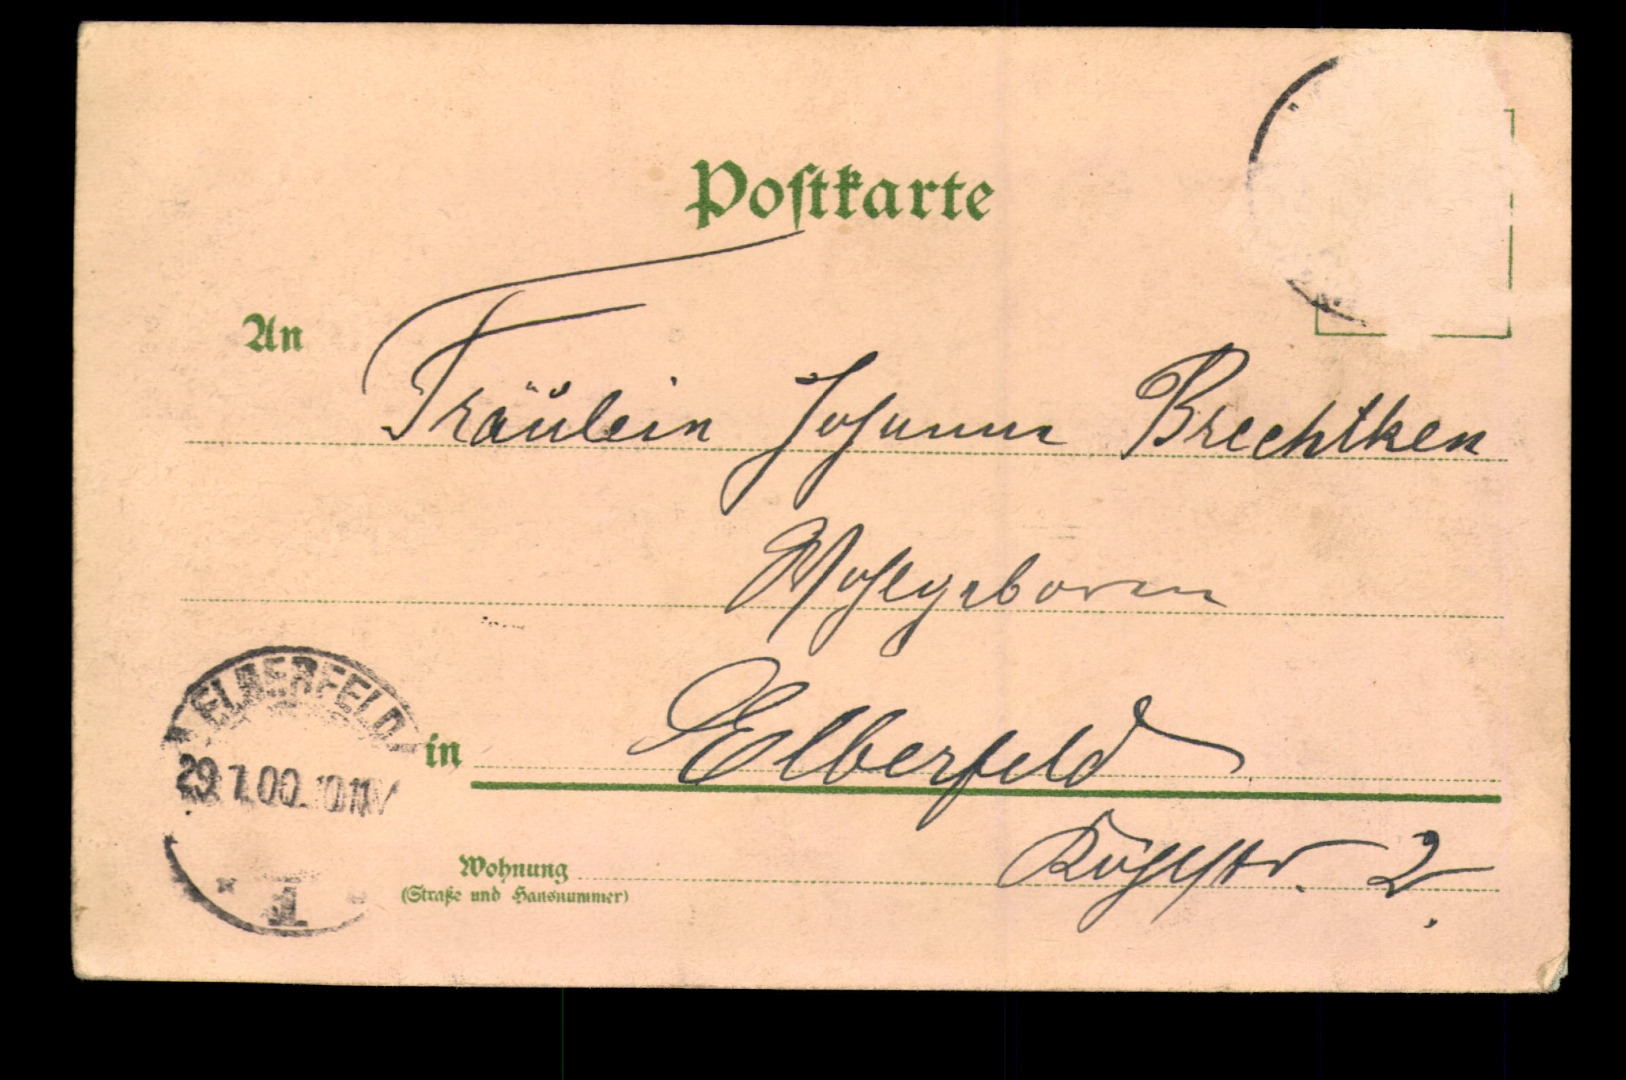 Postkarte
An
Fräulein Johanna Brechtken
Wohlgeboren
in Elberfeld
Wohnung
(Straße und Hausnummer)
2.
ELBERFELD
29.7.00.
1